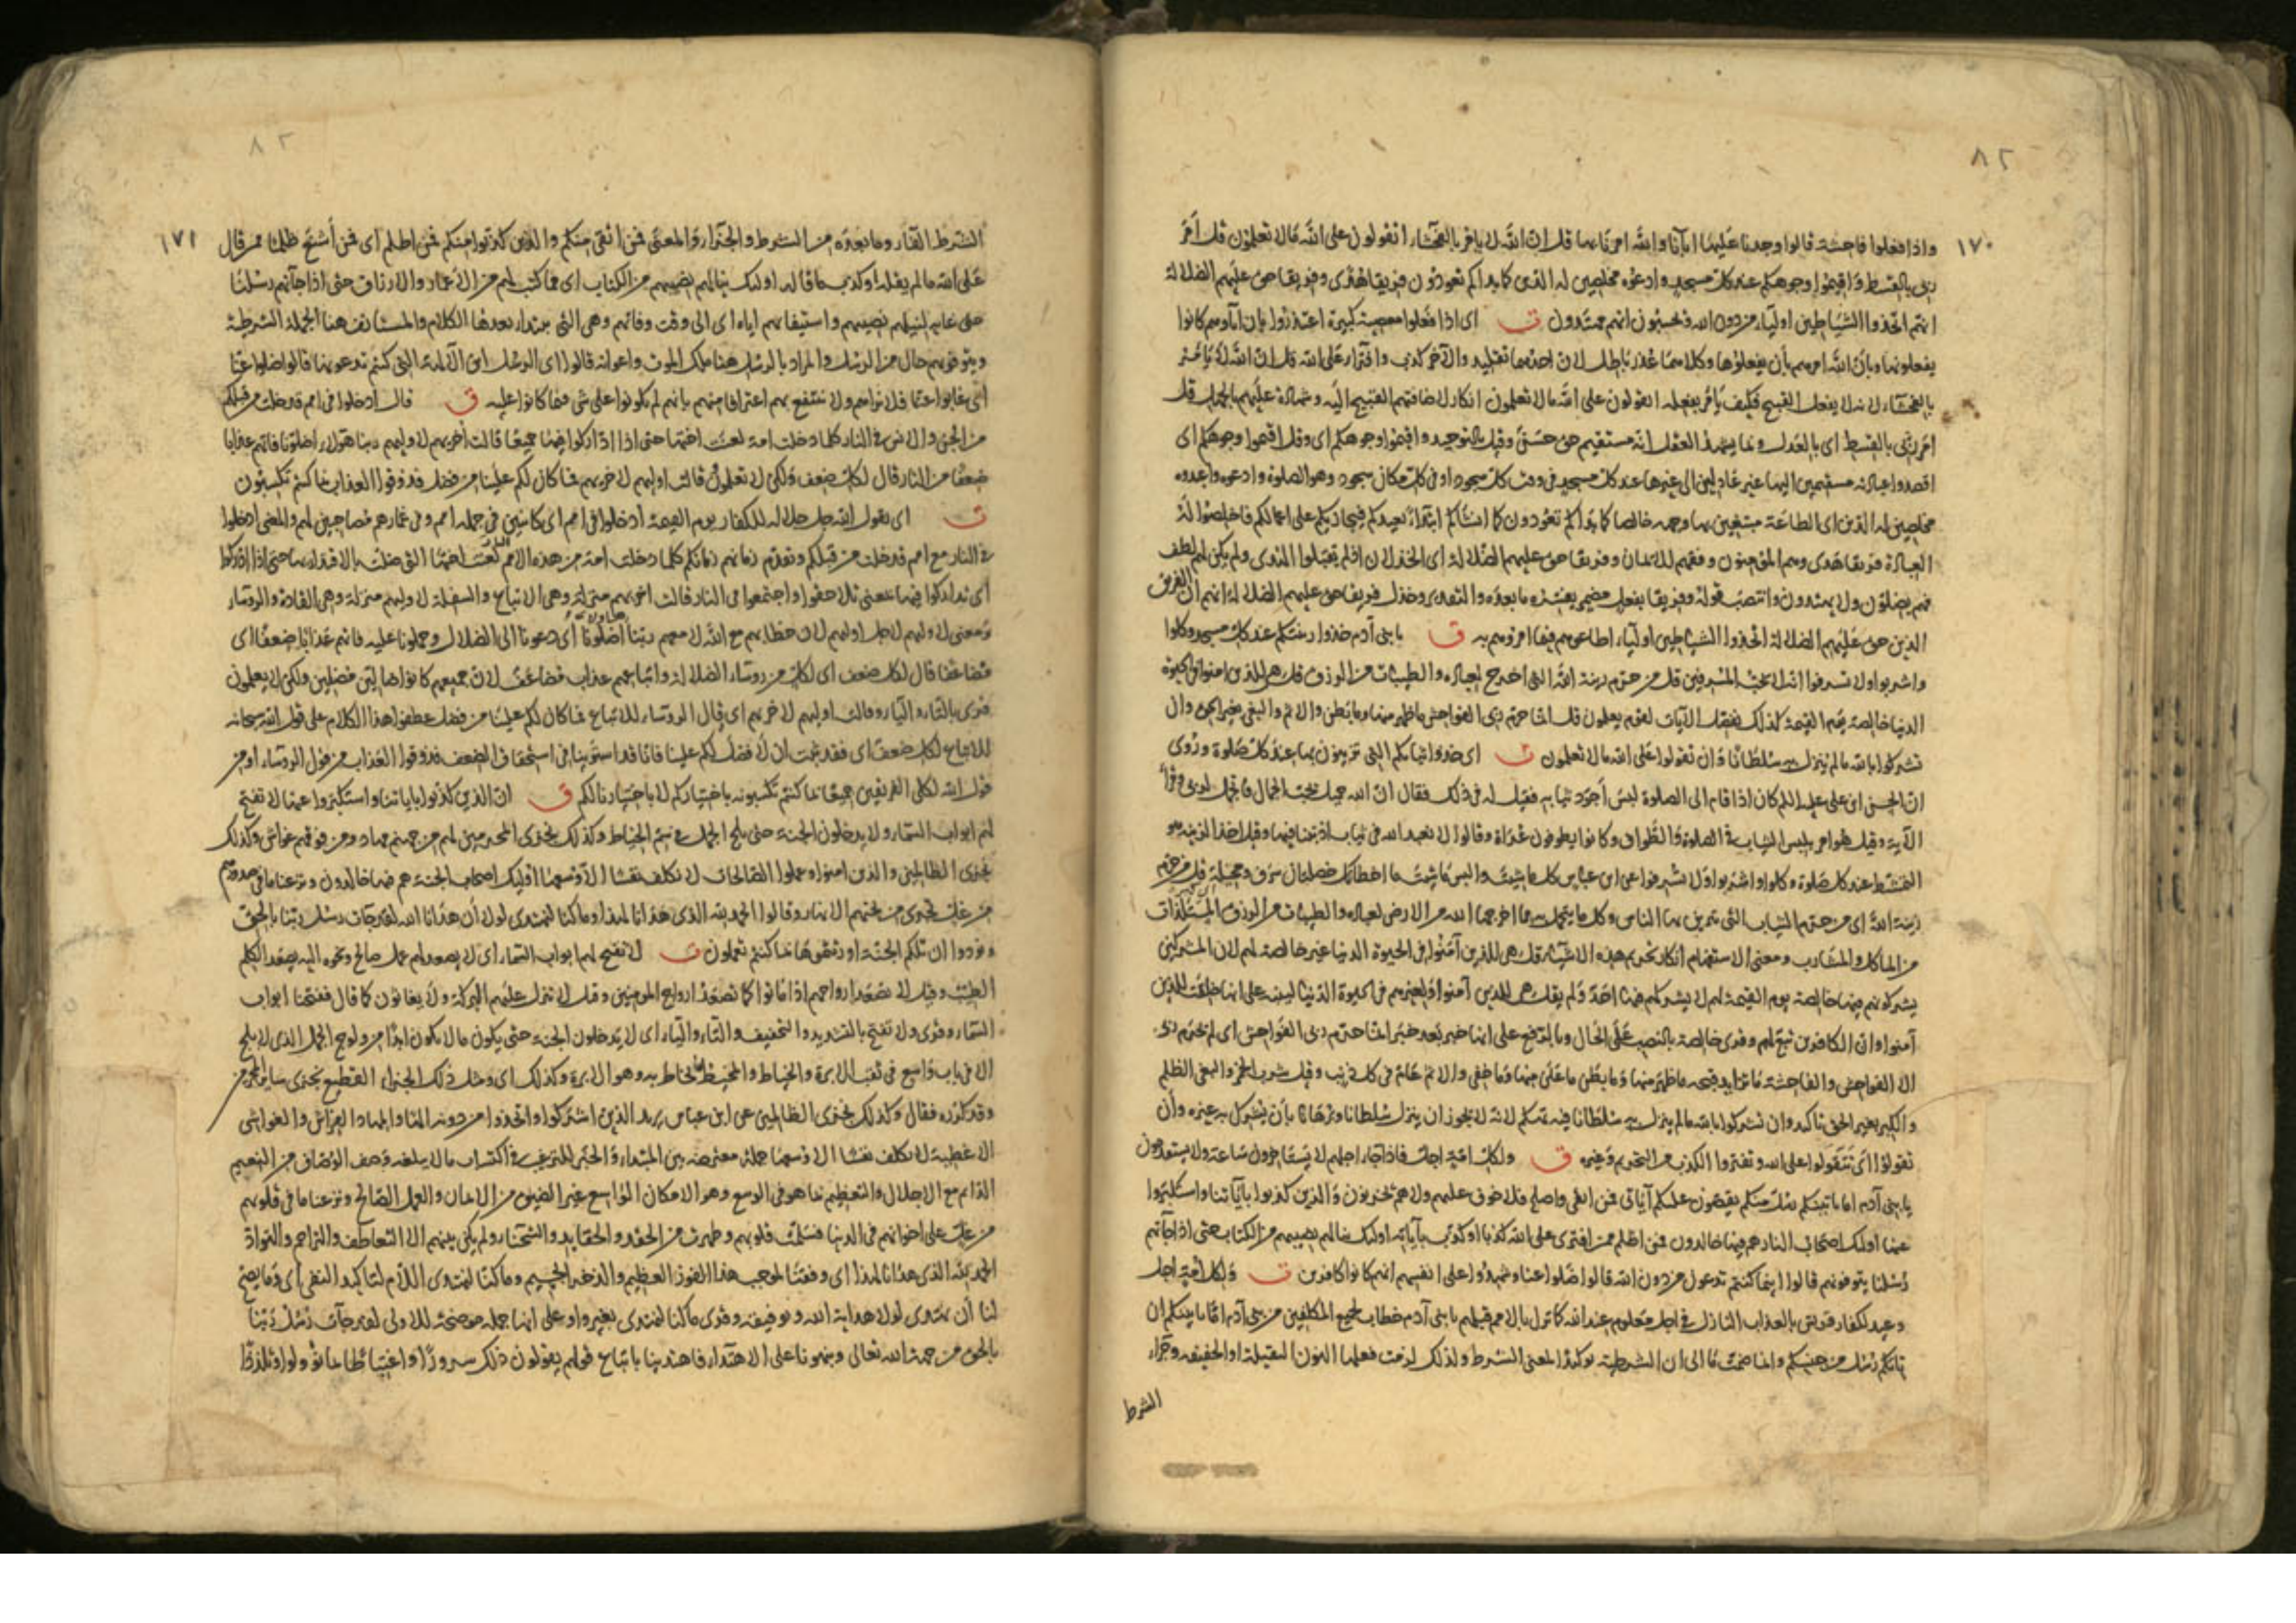 ٨٢
١٧٠
واذا فعلوا فاحشة قالوا وجدنا عليها اباءنا والله امرنا بها قل ان الله لا يامر بالفحشاء اتقولون على الله ما لا تعلمون قل امر
ربى بالقسط واقيموا وجوهكم عند كل مسجد وادعوه مخلصين له الدين كما بداكم تعودون فريقا هدى وفريقا حق عليهم الضلالة
انهم اتخذوا الشياطين اولياء من دون الله ويحسبون انهم مهتدون ت اى اذا فعلوا معصية كبيرة اعتذروا بان اباءهم كانوا
يفعلونها وبان الله امرهم بأن يفعلوها وكلاهما عذر باطل لان احدهما تقليد والآخر كذب وافتراء على الله قل ان الله لا يامر
بالفحشاء لانه لا يفعل القبيح فكيف يأمر بفعله اتقولون على الله ما لا تعلمون انكار لاضافتهم القبيح اليه وشهادة عليهم بالجهل قل
امر ربى بالقسط اى بالعدل وبما يشهد العقل انه مستقيم حق حسن وقيل بالتوحيد واقيموا وجوهكم اى وقل اقيموا وجوهكم اى
اقصدوا عبادته مستقيمين اليها غير عادلين الى غيرها عند كل مسجد فى وقت كل سجود او فى كل مكان سجود وهو الصلوة وادعوه واعبدوه
مخلصين له الدين اى الطاعة مبتغين بها وجهه خالصا كما بداكم تعودون كما انشاكم ابتداء يعيدكم فيجازيكم على اعمالكم فاخلصوا له
العبادة فريقا هدى وهم المؤمنون وفقهم للايمان وفريقا حق عليهم الضلالة اى الخذلان اذ لم يقبلوا الهدى ولم يكن لهم لطف
فهم يضلون ولا يهتدون وانتصب قوله وفريقا بفعل مضمر يفسره ما بعده والتقدير وخذل فريقا حق عليهم الضلالة انهم ان الفريق
الذين حق عليهم الضلالة اتخذوا الشياطين اولياء اطاعوهم فيما امروهم به ق يا بنى آدم خذوا زينتكم عند كل مسجد وكلوا
واشربوا ولا تسرفوا انه لا يحب المسرفين قل من حرم زينة الله التى اخرج لعباده والطيبات من الرزق قل هى للذين امنوا فى الحيوة
الدنيا خالصة يوم القيمة كذلك نفصل الآيات لقوم يعلمون قل انما حرم ربى الفواحش ما ظهر منها وما بطن والاثم والبغى بغير الحق وان
تشركوا بالله ما لم ينزل به سلطانا وان تقولوا على الله ما لا تعلمون ت اى خذوا ثيابكم التى تتزينون بها عند كل صلوة وروى
ان الحسن ابن على عليه السلم كان اذا قام الى الصلوة لبس أجود ثيابه فقيل له فى ذلك فقال ان الله جميل يحب الجمال فاتجمل لربى وقرأ
الآية وقيل هو امر بلبس الثياب فى الصلوة والطواف وكانوا يطوفون عراة وقالوا لا نعبد الله فى ثياب اذنبنا فيها وقيل اخذ الزينة هو
التمشط عند كل صلوة وكلوا واشربوا ولا تسرفوا عن ابن عباس كل ما شئت والبس ما شئت ما اخطأتك خصلتان سرف ومخيلة قل من حرم
زينة الله اى من حرم الثياب التى يتزين بها الناس وكل ما يتجمل به مما اخرجها الله من الارض لعباده والطيبات من الرزق المستلذات
من الماكل والمشارب ومعنى الاستفهام انكار تحريم هذه الاشياء قل هى للذين آمنوا فى الحيوة الدنيا غير خالصة لهم لان المشركين
يشركونهم فيها خالصة يوم القيمة لهم لا يشركهم فيها احد ولم يقل هى للذين آمنوا ولغيرهم فى الحيوة الدنيا لينبه على انها خلقت للذين
آمنوا وان الكافرين تبع لهم وقرى خالصة بالنصب على الحال وبالرفع على انها خبر بعد خبر انما حرم ربى الفواحش اى لم يحرم ربى
الا الفواحش والفاحشة ما تزايد قبحه ما ظهر منها وما بطن ما علن منها وما خفى والاثم عام فى كل ذنب وقيل شرب الخمر والبغى الظلم
والكبر بغير الحق تاكيد وان تشركوا بالله ما لم ينزل به سلطانا فيه تهكم لانه لا يجوز ان ينزل سلطانا وبرهانا بأن يشرك به غيره وأن
تقولوا اى تتقولوا على الله وتفتروا الكذب من التحريم وغيره ق ولكل امة اجل فاذا جاء اجلهم لا يستاخرون ساعة ولا يستقدمون
يا بنى آدم اما ياتينكم رسل منكم يقصون عليكم آياتى فمن اتقى واصلح فلا خوف عليهم ولا هم يحزنون والذين كذبوا بآياتنا واستكبروا
عنها اولئك اصحاب النار هم فيها خالدون فمن اظلم ممن افترى على الله كذبا او كذب بآياته اولئك ينالهم نصيبهم من الكتاب حتى اذا جاءتهم
رسلنا يتوفونهم قالوا اينما كنتم تدعون من دون الله قالوا ضلوا عنا وشهدوا على انفسهم انهم كانوا كافرين ت ولكل امة اجل
وعيد لكفار قريش بالعذاب النازل فى اجل معلوم عند الله كما نزل بالامم قبلهم يا بنى آدم خطاب لجميع المكلفين من بنى آدم اما ياتينكم ان
ياتكم رسل من جنسكم وانما ضمت ما الى ان الشرطية توكيدا لمعنى الشرط ولذلك لزمت فعلها النون الثقيلة او الخفيفة وجزاء
الشرط
٨٢
١٧١
الشرط الفاء وما بعده من الشرط والجزاء والمعنى فمن اتقى منكم والذين كذبوا منكم فمن اظلم اى فمن أشنع ظلما ممن قال
على الله ما لم يقله او كذب ما قاله اولئك ينالهم نصيبهم من الكتاب اى مما كتب لهم من الاعمار والارزاق حتى اذا جآتهم رسلنا
حتى غاية لنيلهم نصيبهم واستيفائهم اياه اى الى وقت وفاتهم وهى التى يبتداء بعدها الكلام والمستانف هنا الجملة الشرطية
ويتوفونهم حال من الرسل والمراد بالرسل هنا ملك الموت واعوانه قالوا اى الرسل اين الآلهة التى كنتم تدعونها قالوا ضلوا عنا
اى غابوا عنا فلا نراهم ولا ننتفع بهم اعترافا منهم بانهم لم يكونوا على شى فيما كانوا عليه ق قال ادخلوا فى امم قد خلت من قبلكم
من الجن والانس فى النار كلما دخلت امة لعنت اختها حتى اذا اداركوا فيها جميعا قالت أخريهم لاوليهم ربنا هؤلاء اضلونا فاتهم عذابا
ضعفا من النار قال لكل ضعف ولكن لا تعلمون وقالت اوليهم لاخريهم فما كان لكم علينا من فضل فذوقوا العذاب بما كنتم تكسبون
ت اى يقول الله جل جلاله للكفار يوم القيمة ادخلوا فى امم اى كائنين فى جملة امم وفى غمارهم مصاحبين لهم والمعنى ادخلوا
فى النار مع امم قد خلت من قبلكم وتقدم زمانهم زمانكم كلما دخلت امة من هذه الامم النار لعنت اختها التى ضلت بالاقتداء بها حتى اذا اداركوا
اى تداركوا فيها بمعنى تلاحقوا واجتمعوا فى النار قالت اخريهم منزلة وهى الاتباع والسفلة لاوليهم منزلة وهى القادة والروساء
ومعنى لاوليهم لاجل اوليهم لان خطابهم مع الله لا معهم ربنا هؤلاء أضلونا أى دعونا الى الضلال وحملونا عليه فاتهم عذابا ضعفا اى
مضاعفا قال لكل ضعف اى لكل من روساء الضلالة واتباعهم عذاب مضاعف لان جميعهم كانوا ضالين مضلين ولكن لا يعلمون
قرى بالتاء والياء وقالت اوليهم لاخريهم اى قال الروساء للاتباع فما كان لكم علينا من فضل عطفوا هذا الكلام على قول الله سبحانه
للاتباع لكل ضعف اى فقد ثبت ان لا فضل لكم علينا فانا قد استوينا فى استحقاق الضعف فذوقوا العذاب من قول الروساء او من
قول الله لكلى الفريقين جميعا بما كنتم تكسبونه باختياركم لا باختيارنا لكم ق ان الذين كذبوا باياتنا واستكبروا عنها لا تفتح
لهم ابواب السماء ولا يدخلون الجنة حتى يلج الجمل فى سم الخياط وكذلك نجزى المجرمين لهم من جهنم مهاد ومن فوقهم غواش وكذلك
نجزى الظالمين والذين امنوا وعملوا الصالحات لا نكلف نفسا الا وسعها اولئك اصحاب الجنة هم فيها خالدون ونزعنا ما فى صدورهم
من غل تجرى من تحتهم الانهار وقالوا الحمد لله الذى هدانا لهذا وما كنا لنهتدى لولا أن هدانا الله لقد جاءت رسل ربنا بالحق
ونودوا ان تلكم الجنة اورثتموها بما كنتم تعملون ت لا تفتح لهم ابواب السماء اى لا يصعد لهم عمل صالح ونحوه اليه يصعد الكلم
الطيب وقيل لا تصعد ارواحهم اذا ماتوا كما تصعد ارواح المومنين وقيل لا تنزل عليهم البركة ولا يغاثون كما قال ففتحنا ابواب
السماء وقرى ولا تفتح بالتشديد والتخفيف والتاء والياء اى لا يدخلون الجنة حتى يكون ما لا يكون ابدا من ولوج الجمل الذى لا يلج
الا فى باب واسع فى ثقب الابرة والخياط والمخيط ما يخاط به وهو الابرة وكذلك اى ومثل ذلك الجزاء الفظيع نجزى ساير المجرمين
وقد كرره فقال وكذلك نجزى الظالمين عن ابن عباس يريد الذين اشركوا واتخذوا من دونه الها والمهاد الفراش والغواشى
الاغطية لا نكلف نفسا الا وسعها جملة معترضة بين المبتداء والخبر للترغيب فى اكتساب ما لا يبلغه وصف الوصاف من النعيم
الدايم مع الاجلال والتعظيم بما هو فى الوسع وهو الامكان الواسع غير الضيق من الايمان والعمل الصالح ونزعنا ما فى قلوبهم
من غل على اخوانهم فى الدنيا فسلمت قلوبهم وطهرت من الحقد والشحناء ولم يكن بينهم الا التعاطف والتراحم والتواد
الحمد لله الذى هدانا لهذا اى وفقنا لموجب هذا الفوز العظيم والذخر الجسيم وما كنا لنهتدى اللام لتاكيد النفى اى وما يصح
لنا أن نهتدى لولا هداية الله وتوفيقه وقرى ما كنا لنهتدى بغير واو على انها جملة موضحة للاولى لقد جآت رسل ربنا
بالحق من جهة الله تعالى ونبهونا على الاهتداء فاهتدينا باتباع قولهم يقولون ذلك سرورا واغتباطا بما نالوا وتلذذا